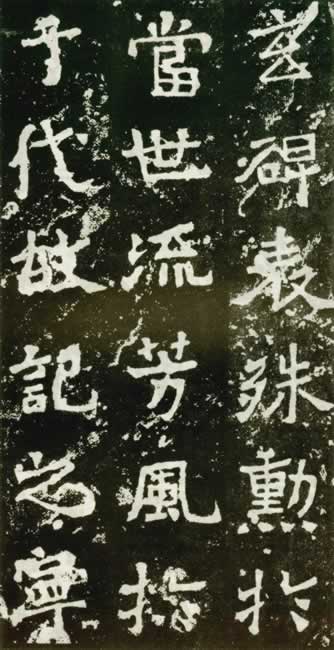 玄碑表殊勳於
當世流芳風於
千代故記之寧